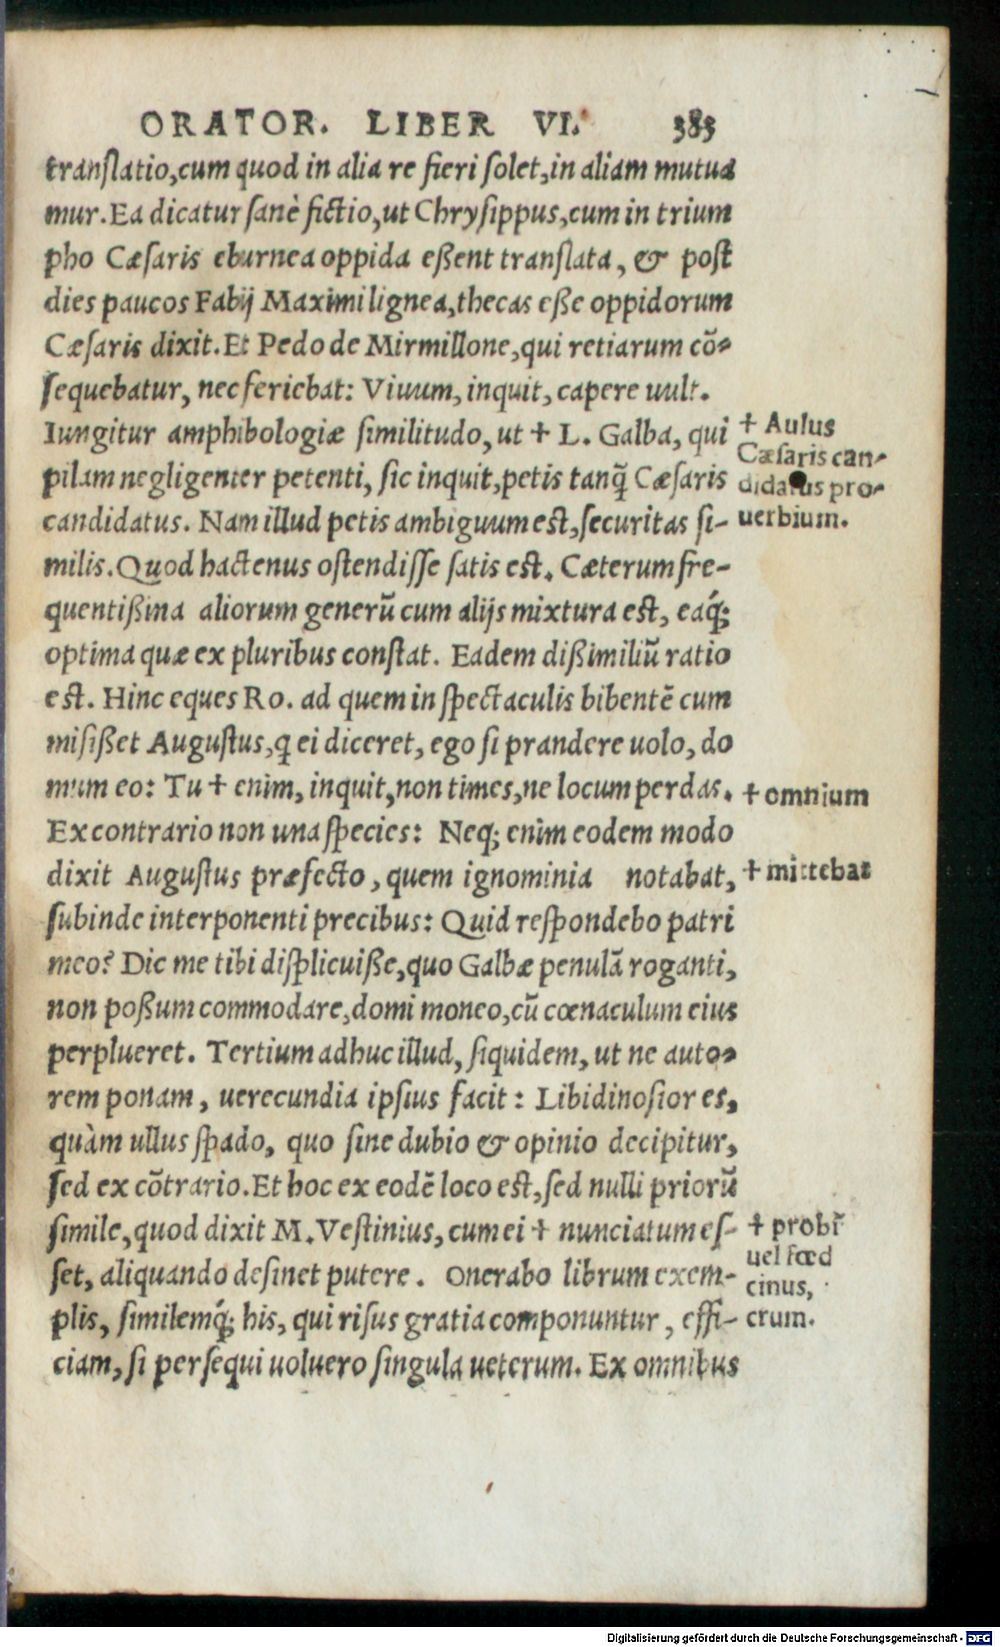 ORATOR. LIBER VI. 383
translatio,cum quod in alia re fieri solet,in aliam mutua
mur.Ea dicatur sanè fictio,ut Chrysippus,cum in trium
pho Cæsaris eburnea oppida eßent translata, & post
dies paucos Fabij Maximi lignea,thecas eße oppidorum
Cæsaris dixit.Et Pedo de Mirmillone,qui retiarum cõ-
sequebatur, nec feriebat: Viuum, inquit, capere uult.
Iungitur amphibologiæ similitudo, ut + L. Galba, qui
pilam negligenter petenti, sic inquit,petis tanq̃ Cæsaris
candidatus. Nam illud petis ambiguum est,securitas si-
milis.Quod hactenus ostendisse satis est. Cæterum fre-
quentißina aliorum generũ cum alijs mixtura est, eaq́;
optima quæ ex pluribus constat. Eadem dißimiliũ ratio
est. Hinc eques Ro. ad quem in spectaculis bibentẽ cum
misißet Augustus,q ei diceret, ego si prandere uolo, do
mum eo: Tu + enim, inquit,non times,ne locum perdas.
Ex contrario non una species: Neq; enim eodem modo
dixit Augustus præfecto, quem ignominia notabat,
subinde interponenti precibus: Quid respondebo patri
meo? Dic me tibi displicuiße,quo Galbæ penulã roganti,
non poßum commodare,domi moneo,cũ cœnaculum eius
perplueret. Tertium adhuc illud, siquidem, ut ne auto-
rem ponam, uerecundia ipsius facit: Libidinosior es,
quàm ullus spado, quo sine dubio & opinio decipitur,
sed ex cõtrario.Et hoc ex eodẽ loco est,sed nulli priorũ
simile,quod dixit M. Vestinius, cum ei + nunciatum es-
set, aliquando desinet putere. Onerabo librum exem-
plis, similemq́; his, qui risus gratia componuntur, effi-
ciam, si persequi uoluero singula ueterum. Ex omnibus
+ Aulus
Cæsaris can-
didatus pro-
uerbium.
+ omnium
+ mittebat
+ probr̃
uel fœd
cinus,
crum.
Digitalisierung gefördert durch die Deutsche Forschungsgemeinschaft - DFG